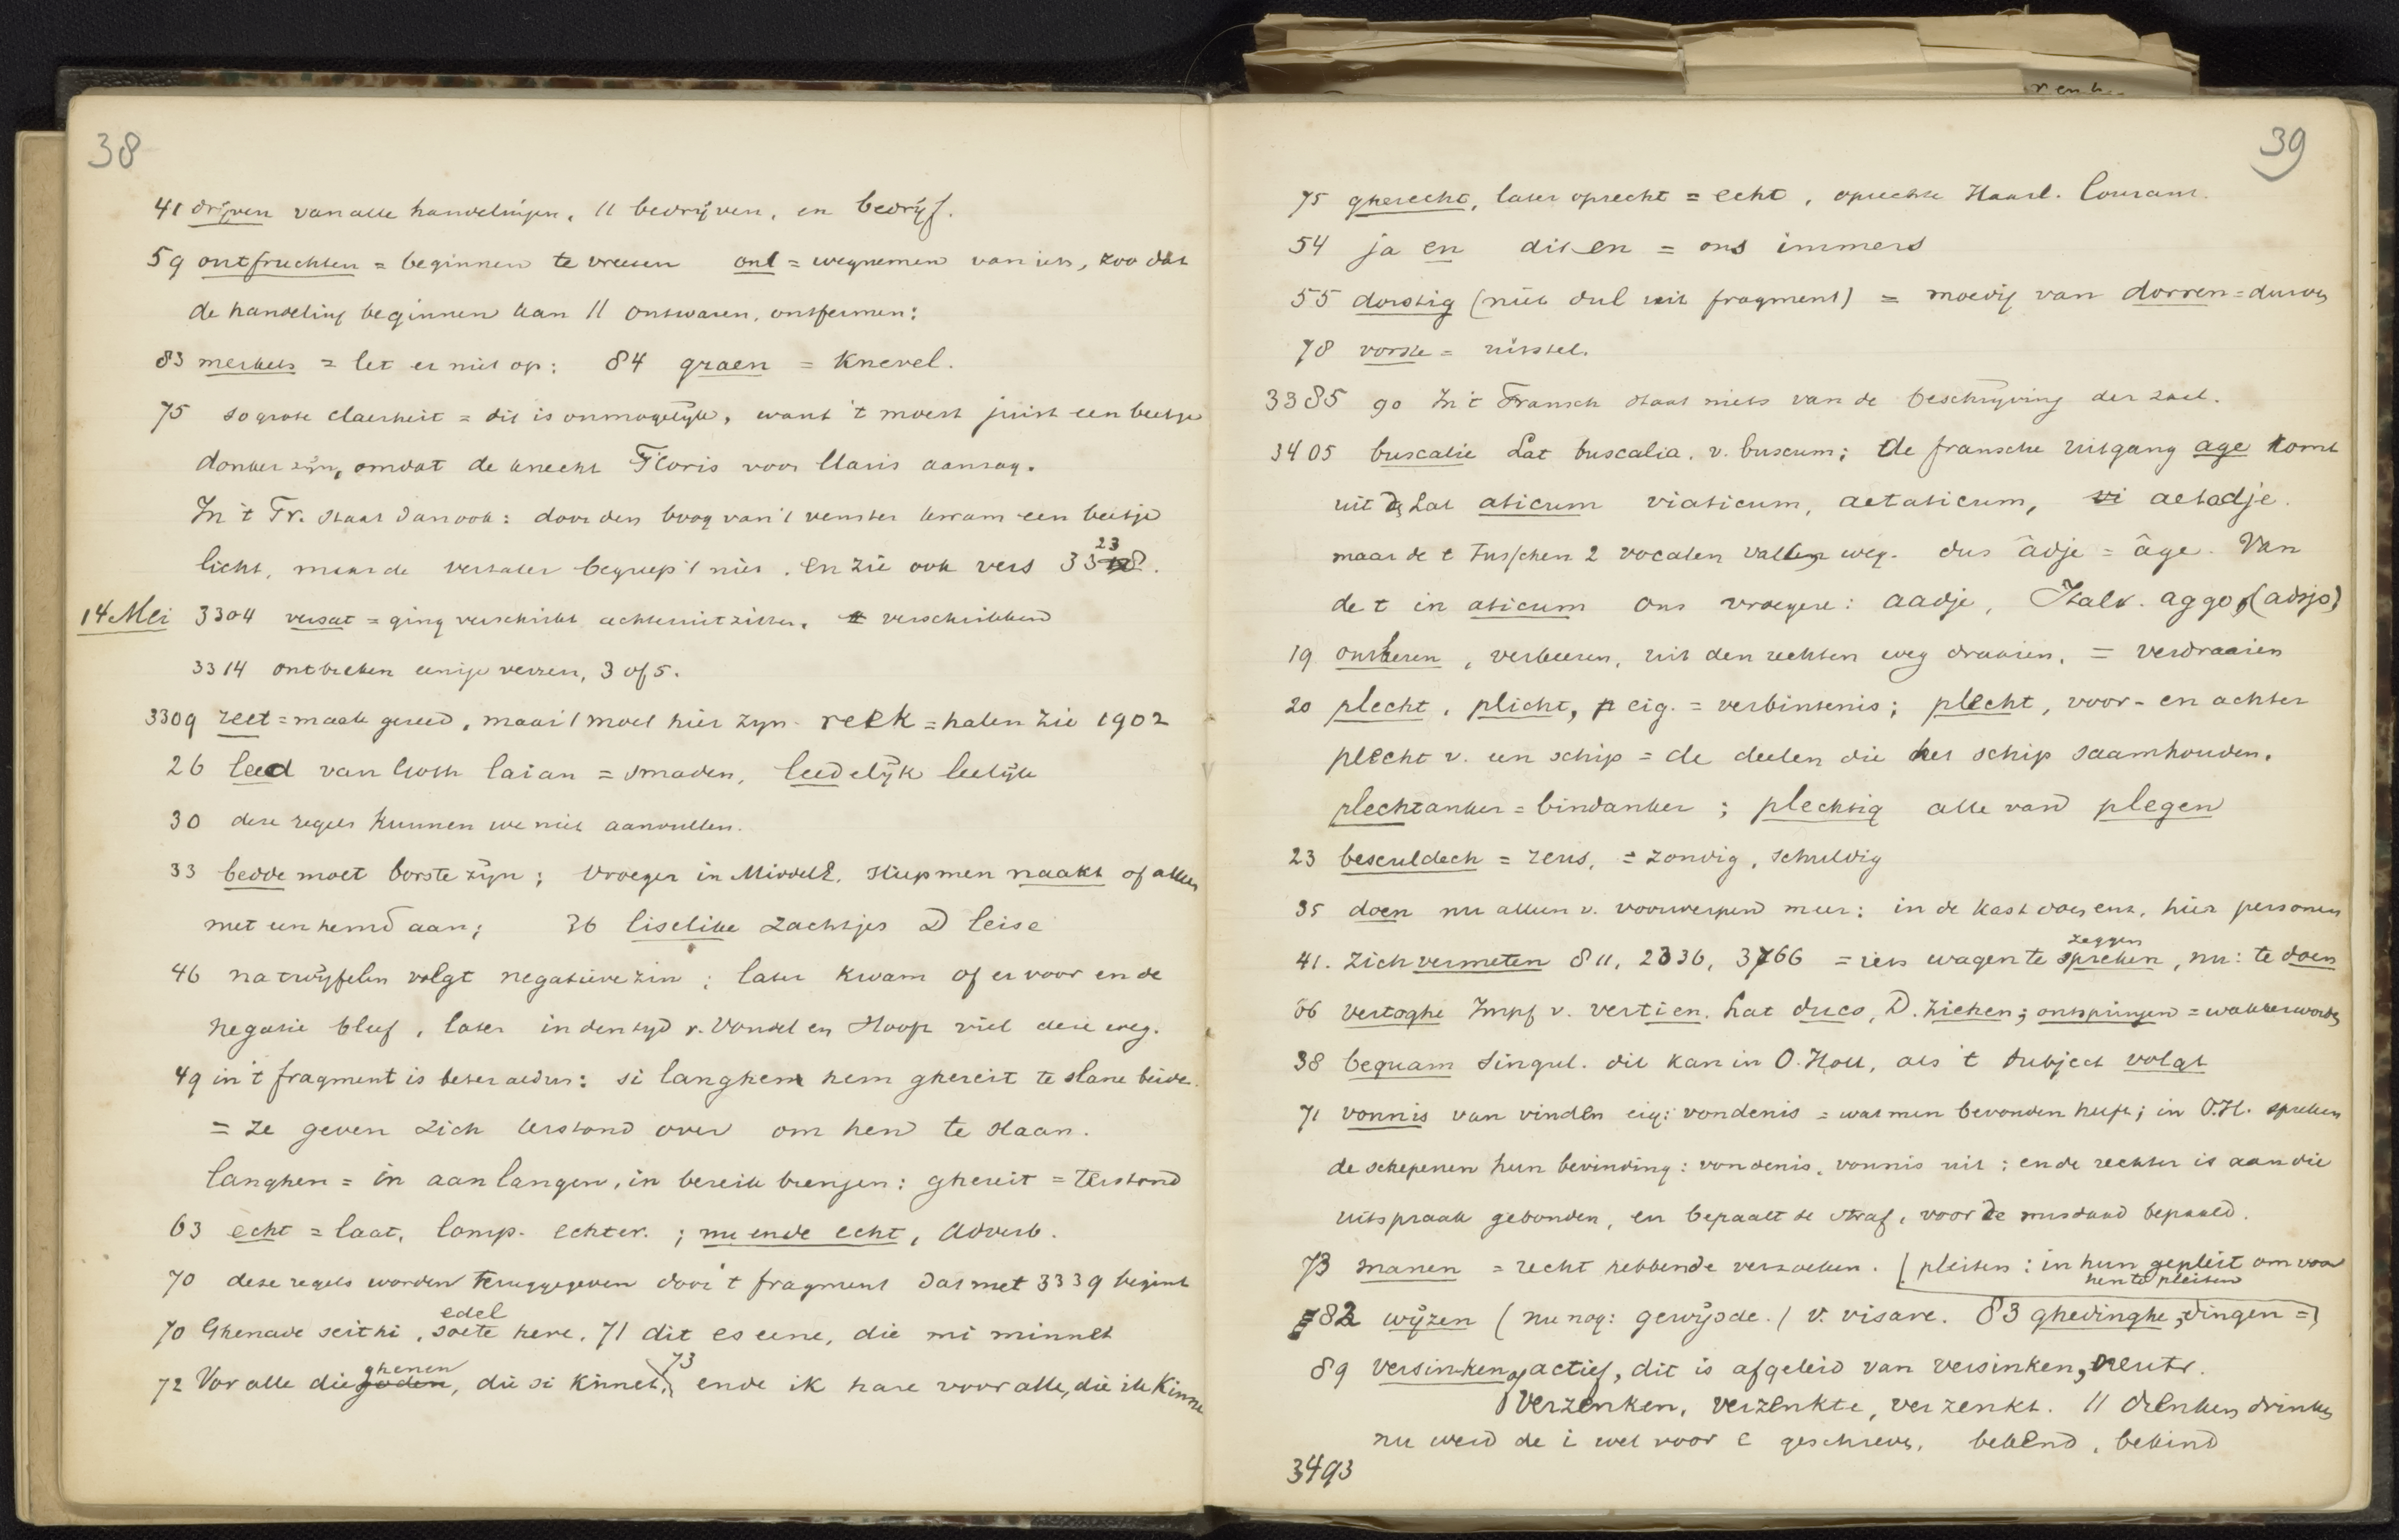 38
41 drijven van alle handelingen. // bedrijven, en bedrijf.
59 ontfruchten = beginnen te vreesen ont = wegnemen van iets, zoo dat
de handeling beginnen kan // ontwaren, ontfermen:
83 merkets = let er niet op: 84 graen = knevel.
75 so grote claerheit = dit is onmogelijk, want 't moest juist een beetje
donker zijn, omdat de knecht Floris voor Claris aanzag.
In 't Fr. staat dan ook: door den boog van 't venster kwam een beetje
licht, maar de vertaler begreep 't niet. en zie ook vers 33 23
14 Mei 3304 versat = ging verschrikt achteruit zitten. verschrikken
3314 ontbreken eenige verzen, 3 of 5.
3309 reet = maak gereed, maar 't moet hier zyn reek = halen zie 1902
26 leed van Goth laian = smaden, leedelijk leelijk
30 deze regels kunnen we niet aanvullen.
33 bedde moet borste zijn; vroeger in MiddelE. sliep men naakt of alleen
met een hemd aan; 36 liselike zachtjes D leise
46 na twijfelen volgt negatieve zin; later kwam of er voor en de
negatie bleef, later in den tijd v. Vondel en Hooft viel deze weg.
49 in 't fragment is beter aldus: si langhen hem ghereit te slane beide.
= ze geven zich terstond over om hen te slaan.
langhen = in aanlangen, in bereik brengen: ghereit = terstond
63 echt = laat, comp. echter.; nu ende echt, adverb.
70 deze regels worden teruggegeven door 't fragment dat met 3339 begint
edel
70 Ghenade seithi, soete here. 71 dit es eene, die mi minnet
ghenen 73
72 Vor alle die goden, die si kinnet, ende ik hare voor alle, die ik kinne
39
75 gherecht, later oprecht = echt, oprechte Haarl. Courant.
54 ja en dit en = ons immers
55 dorstig (niet dul uit fragment) = moedig van dorren = durven
78 vorste = uitstel.
3385 90 In 't Fransch staat niets van de beschrijving der zaal.
3405 buscalie Lat buscalia. v. buscum; de fransche uitgang age komt
uit Lat aticum viaticum, aetaticum, vi aetadje.
maar de t tusschen 2 vocalen vallen weg. dus âdje = âge. Van
de t in aticum ons vroegere: aadje, Ital. aggo, (adsjo)
19 onsteren, verkeeren, uit den rechten weg draaien. = verdraaien
20 plecht, plicht, eig. = verbintenis; plecht, voor- en achter
plecht v. een schip = de deelen die het schip saamhouden.
plechtanker = bindanker; plechtig alle van plegen
23 besculdech = zeus, = zondig, schuldig
35 doen nu alleen v. voorwerpen meer: in de kast doen enz., hier personen
zeggen
41. zich vermeten 811, 2336, 3766 = iets wagen te spreken, nu: te doen
66 vertoghe Impf v. vertien. Lat duco, D. ziehen; ontspringen = wakker worden
38 bequam singul. dit kan in O. Holl, als 't subject volgt
71 vonnis van vinden eig: vondenis = wat men bevonden heeft; in O.H. spreken
de schepenen hun bevinding: vondenis, vonnis uit; en de rechter is aan die
uitspraak gebonden, en bepaalt de straf, voor de misdaad bepaald.
73 manen = recht hebbende verzoeken. (pleiten: in hun gepleit om voor
hen te pleiten
82 wijzen (nu nog: gewijsde.) v. visare. 83 ghedinghe, dingen =)
89 versinken actief, dit is afgeleid van versinken, neutr.
verzenken, verzenkte, verzenkt. // drenken drinken
nu werd de i wel voor e geschreven. bekend, bekind
3493